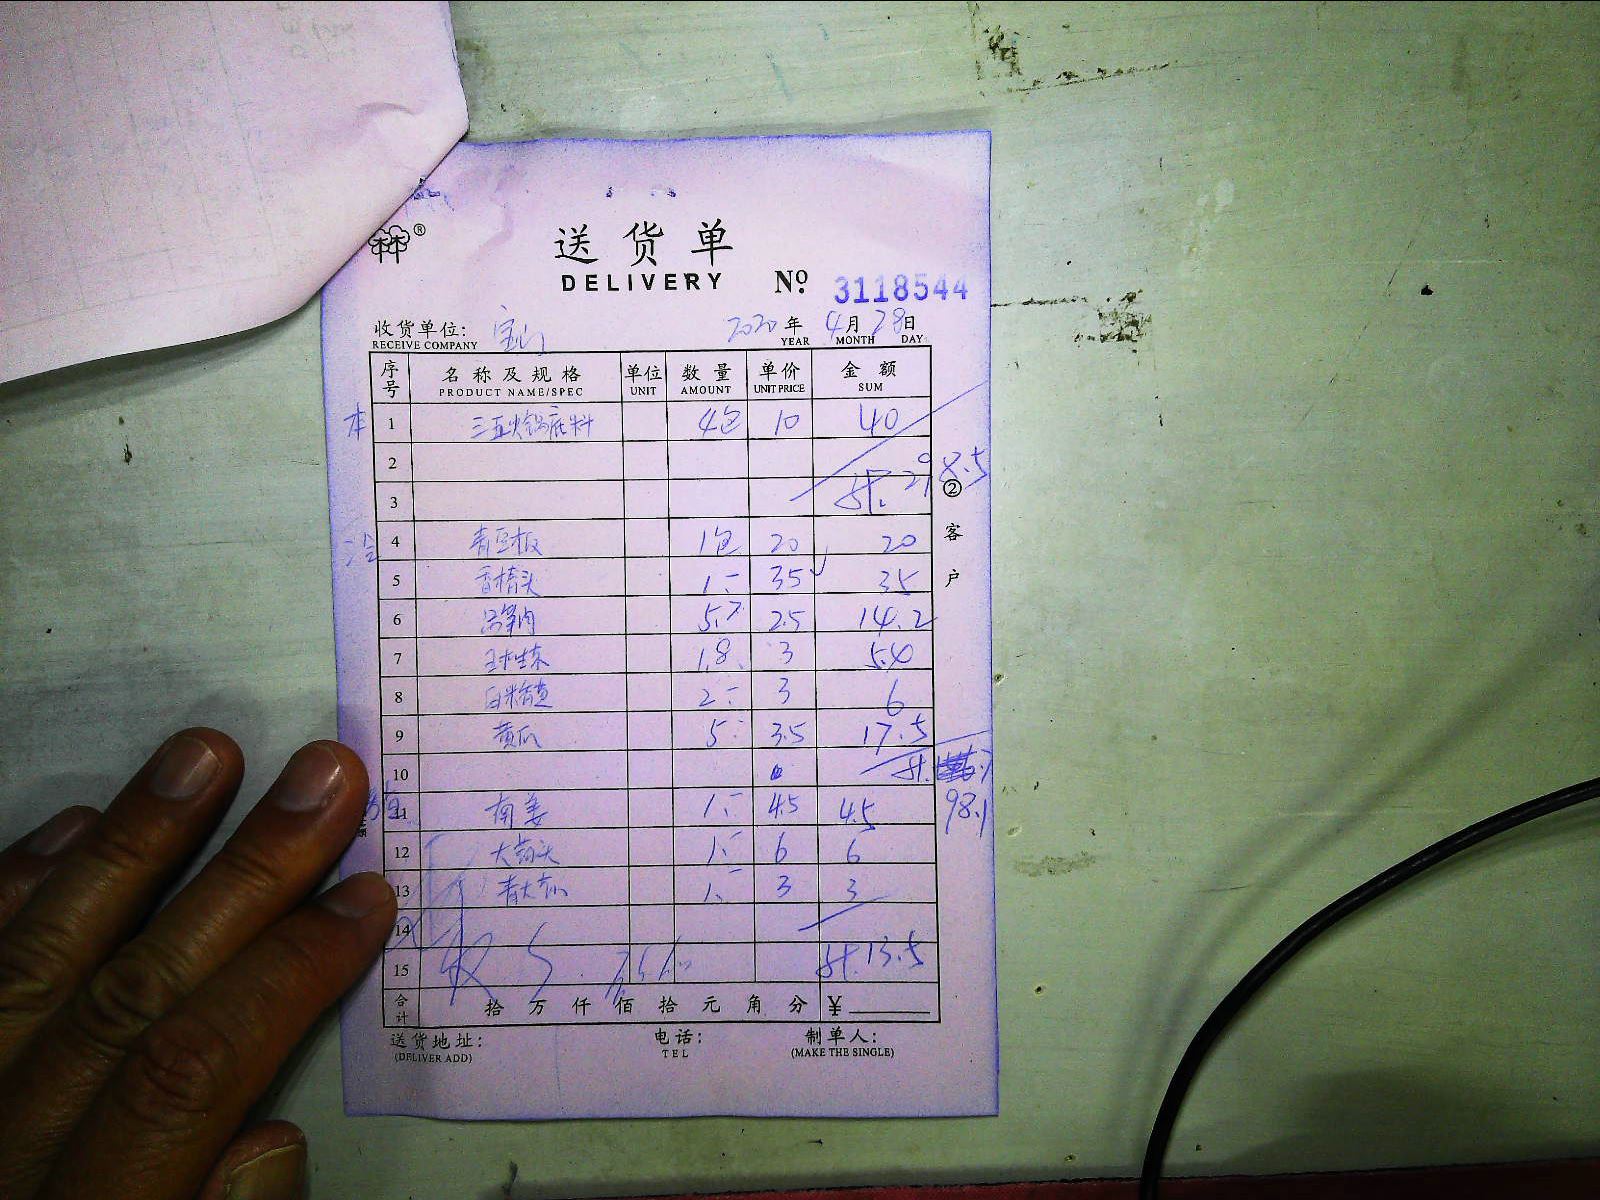 送货单
DELIVERY № 3118544
收货单位: 2020年4月28日
RECEIVE COMPANY YEAR MONTH DAY
序号 名称及规格 单位 数量 单价 金额
PRODUCT NAME/SPEC UNIT AMOUNT UNIT PRICE SUM
本 1 三五火锅底料 4包 10 40
2
3 计. 298.5
② 客户
4 1包 20 20
5 1 35 35
6 5.7 2.5 14.2
7 1.8 3 5.4
8 2 3 6
9 黄瓜 5 3.5 17.5
10 计.
98.1
11 南姜 1 4.5 4.5
12 1 6 6
13 1 3 3
14
15 计.13.5
合计 拾万仟佰拾元角分 ¥
送货地址: 电话: 制单人:
(DELIVER ADD) TEL (MAKE THE SINGLE)